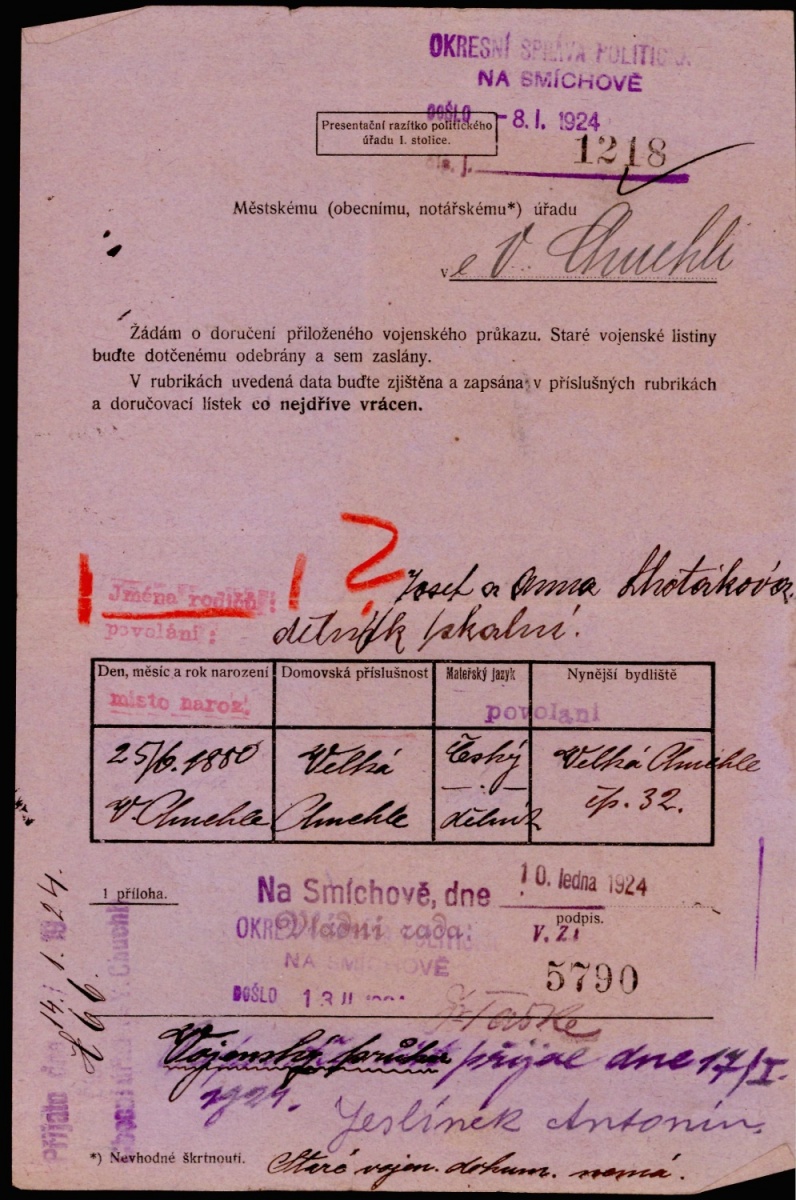 OKRESNÍ SPRÁVA POLITICKÁ
NA SMÍCHOVĚ
DOŠLO -8. I. 1924
Presentační razítko politického
úřadu I. stolice.
čís. j. 1218
Městskému (obecnímu, notářskému*) úřadu
v e V. Chuchli
Žádám o doručení přiloženého vojenského průkazu. Staré vojenské listiny
buďte dotčenému odebrány a sem zaslány.
V rubrikách uvedená data buďte zjištěna a zapsána v příslušných rubrikách
a doručovací lístek co nejdříve vrácen.
Jména rodičů: ! 2 Josef a Anna Lhotáková.
povolání: dělník skalní.
Den, měsíc a rok narození Domovská příslušnost Mateřský jazyk Nynější bydliště
místo naroz. povolání
25/6. 1880 Velká Český Velká Chuchle
V. Chuchle Chuchle dělník čp. 32.
1 příloha. Na Smíchově, dne 10. ledna 1924
podpis.
OKRE Vládní rada: V. Z.
NA SMÍCHOVĚ
DOŠLO 5790
Vojenský průkaz přijal dne 17/I.
1924.
Jeslínek Antonín.
*) Nevhodné škrtnouti. Staré vojen. dokum. nemá.
Přijato dne 14. 1. 1924.
V. Chuchli